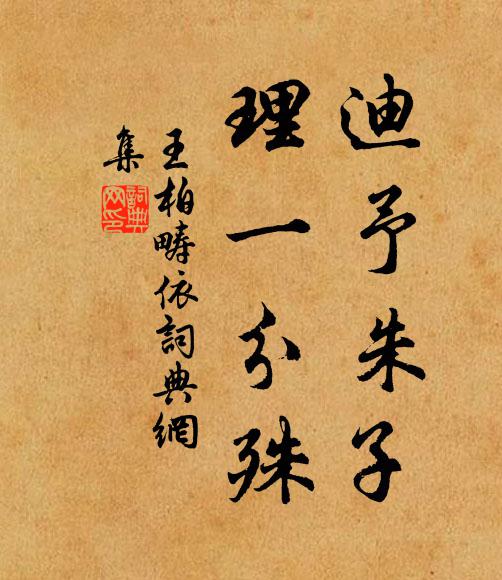 迪予朱子
理一分殊
王柏畴依詞典網
集
詞典網印